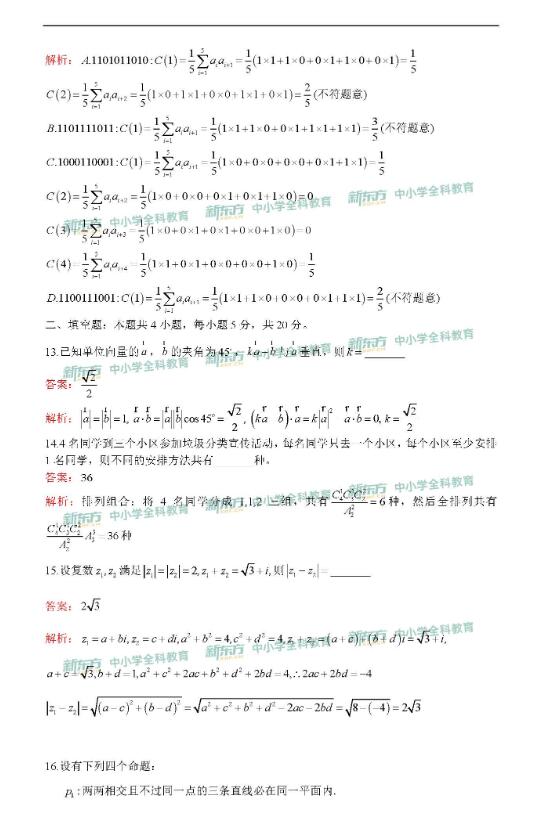 解析：A.1101011010:C(1)=\frac{1}{5}\sum_{i=1}^{5}a_i a_{i+1}=\frac{1}{5}(1×1+1×0+0×1+1×0+0×1)=\frac{1}{5}
C(2)=\frac{1}{5}\sum_{i=1}^{5}a_i a_{i+2}=\frac{1}{5}(1×0+1×1+0×0+1×1+0×1)=\frac{2}{5}(不符题意)
B.1101111011:C(1)=\frac{1}{5}\sum_{i=1}^{5}a_i a_{i+1}=\frac{1}{5}(1×1+1×0+0×1+1×1+1×1)=\frac{3}{5}(不符题意)
C.1000110001:C(1)=\frac{1}{5}\sum_{i=1}^{5}a_i a_{i+1}=\frac{1}{5}(1×0+0×0+0×0+0×1+1×1)=\frac{1}{5}
C(2)=\frac{1}{5}\sum_{i=1}^{5}a_i a_{i+2}=\frac{1}{5}(1×0+0×0+0×1+0×1+1×0)=0
C(3)=\frac{1}{5}\sum_{i=1}^{5}a_i a_{i+3}=\frac{1}{5}(1×0+0×1+0×1+0×0+1×0)=0
C(4)=\frac{1}{5}\sum_{i=1}^{5}a_i a_{i+4}=\frac{1}{5}(1×1+0×1+0×0+0×0+1×0)=\frac{1}{5}
D.1100111001:C(1)=\frac{1}{5}\sum_{i=1}^{5}a_i a_{i+1}=\frac{1}{5}(1×1+1×0+0×0+0×1+1×1)=\frac{2}{5}(不符题意)
二、填空题：本题共4小题，每小题5分，共20分。
13.已知单位向量的a，b的夹角为45°，ka-b与a垂直，则k=______
答案：\frac{\sqrt{2}}{2}
解析：|a|=|b|=1, a·b=|a||b|cos45°=\frac{\sqrt{2}}{2}, (ka b)·a=k|a|^2 a·b=0, k=\frac{\sqrt{2}}{2}
14.4名同学到三个小区参加垃圾分类宣传活动，每名同学只去一个小区，每个小区至少安排
1名同学，则不同的安排方法共有______种。
答案：36
解析：排列组合：将4名同学分成1,1,2三组，共有\frac{C_4^1C_3^1C_2^2}{A_2^2}=6种，然后全排列共有
\frac{C_4^1C_3^1C_2^2}{A_2^2}A_3^3=36种
15.设复数z_1,z_2满足|z_1|=|z_2|=2,z_1+z_2=\sqrt{3}+i,则|z_1-z_2|=______
答案：2\sqrt{3}
解析：z_1=a+bi,z_2=c+di,a^2+b^2=4,c^2+d^2=4,z_1+z_2=(a+c)+(b+d)i=\sqrt{3}+i,
a+c=\sqrt{3},b+d=1,a^2+c^2+2ac+b^2+d^2+2bd=4,∴2ac+2bd=-4
|z_1-z_2|=\sqrt{(a-c)^2+(b-d)^2}=\sqrt{a^2+c^2+b^2+d^2-2ac-2bd}=\sqrt{8-(-4)}=2\sqrt{3}
16.设有下列四个命题：
p_1:两两相交且不过同一点的三条直线必在同一平面内.
新东方 中小学全科教育